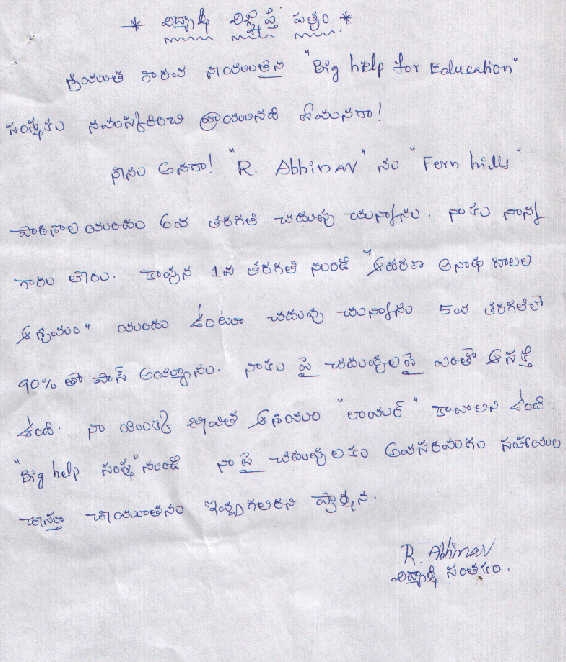 * విద్యార్థి విజ్ఞప్తి పత్రం *
గౌరవ "Big help for Education"
సంస్థకు నమస్కరించి వ్రాయునది ఏమనగా!
నేను అనగా! "R. Abhinav" నేను "Fern hills"
పాఠశాల యందు 6వ తరగతి చదువు చున్నాను. నాకు నాన్న
గారు లేరు. కావున 1వ తరగతి నుండి "ఆదరణ అనాథ బాలల
ఆశ్రమం" యందు ఉంటూ చదువు చున్నాను 5వ తరగతిలో
90% తో పాస్ అయ్యాను. నాకు పై చదువులపై ఎంతో ఆసక్తి
ఉంది. నా యొక్క జీవిత ఆశయం "లాయర్" కావాలని ఉంది
"Big help సంస్థ" నుండి నా పై చదువులకు అవసరమగు సహాయం
చేస్తూ చేయూతను ఇవ్వగలరని ప్రార్థన.
R. Abhinav
విద్యార్థి సంతకం.